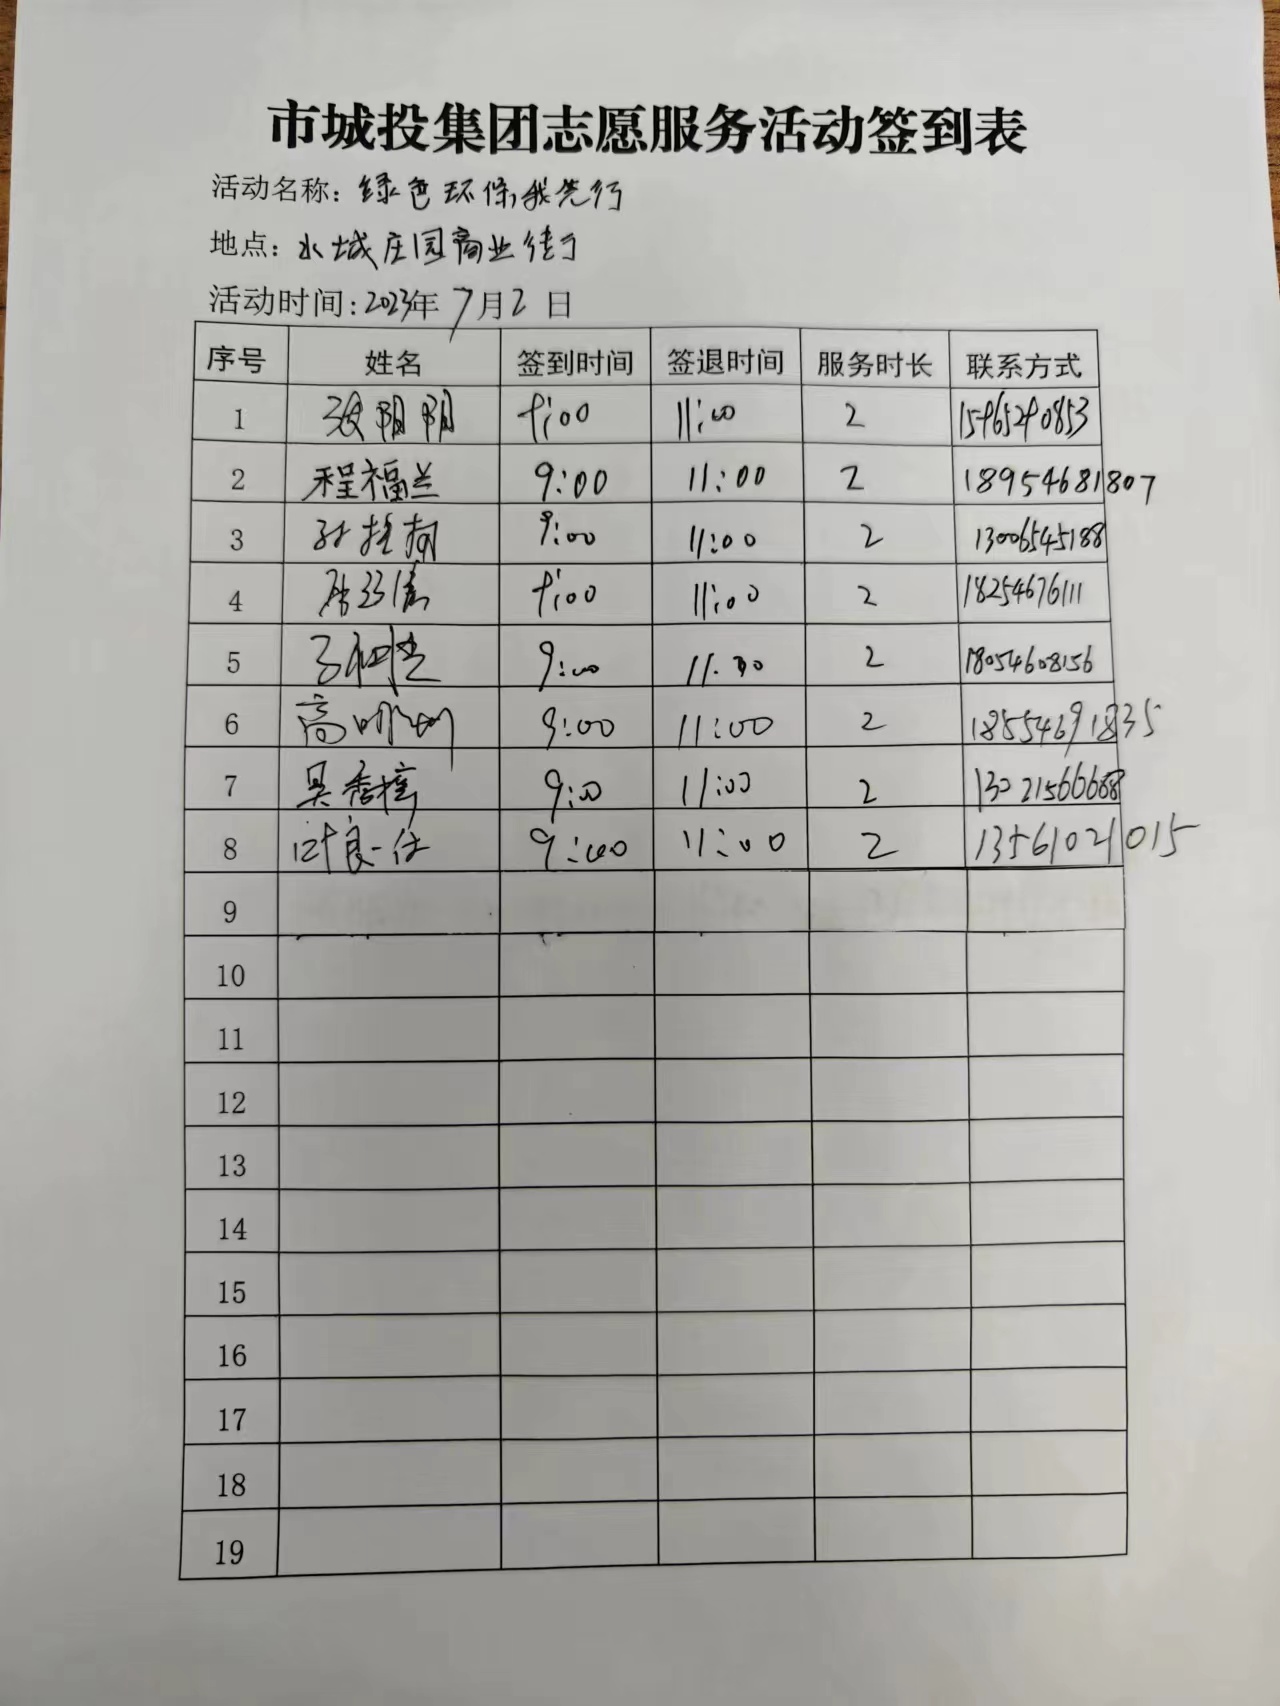 市城投集团志愿服务活动签到表
活动名称：绿色环保，我先行
地点：水城庄园商业街
活动时间：2023年7月2日
序号 姓名 签到时间 签退时间 服务时长 联系方式
1 9:00 11:00 2
2 程福兰 9:00 11:00 2 18954681807
3 9:00 11:00 2 13006545188
4 9:00 11:00 2 18254676111
5 9:00 11:00 2 18054608156
6 高 9:00 11:00 2 18554691835
7 吴秀 9:00 11:00 2 13021566688
8 叶良 9:00 11:00 2 13561021015
9
10
11
12
13
14
15
16
17
18
19